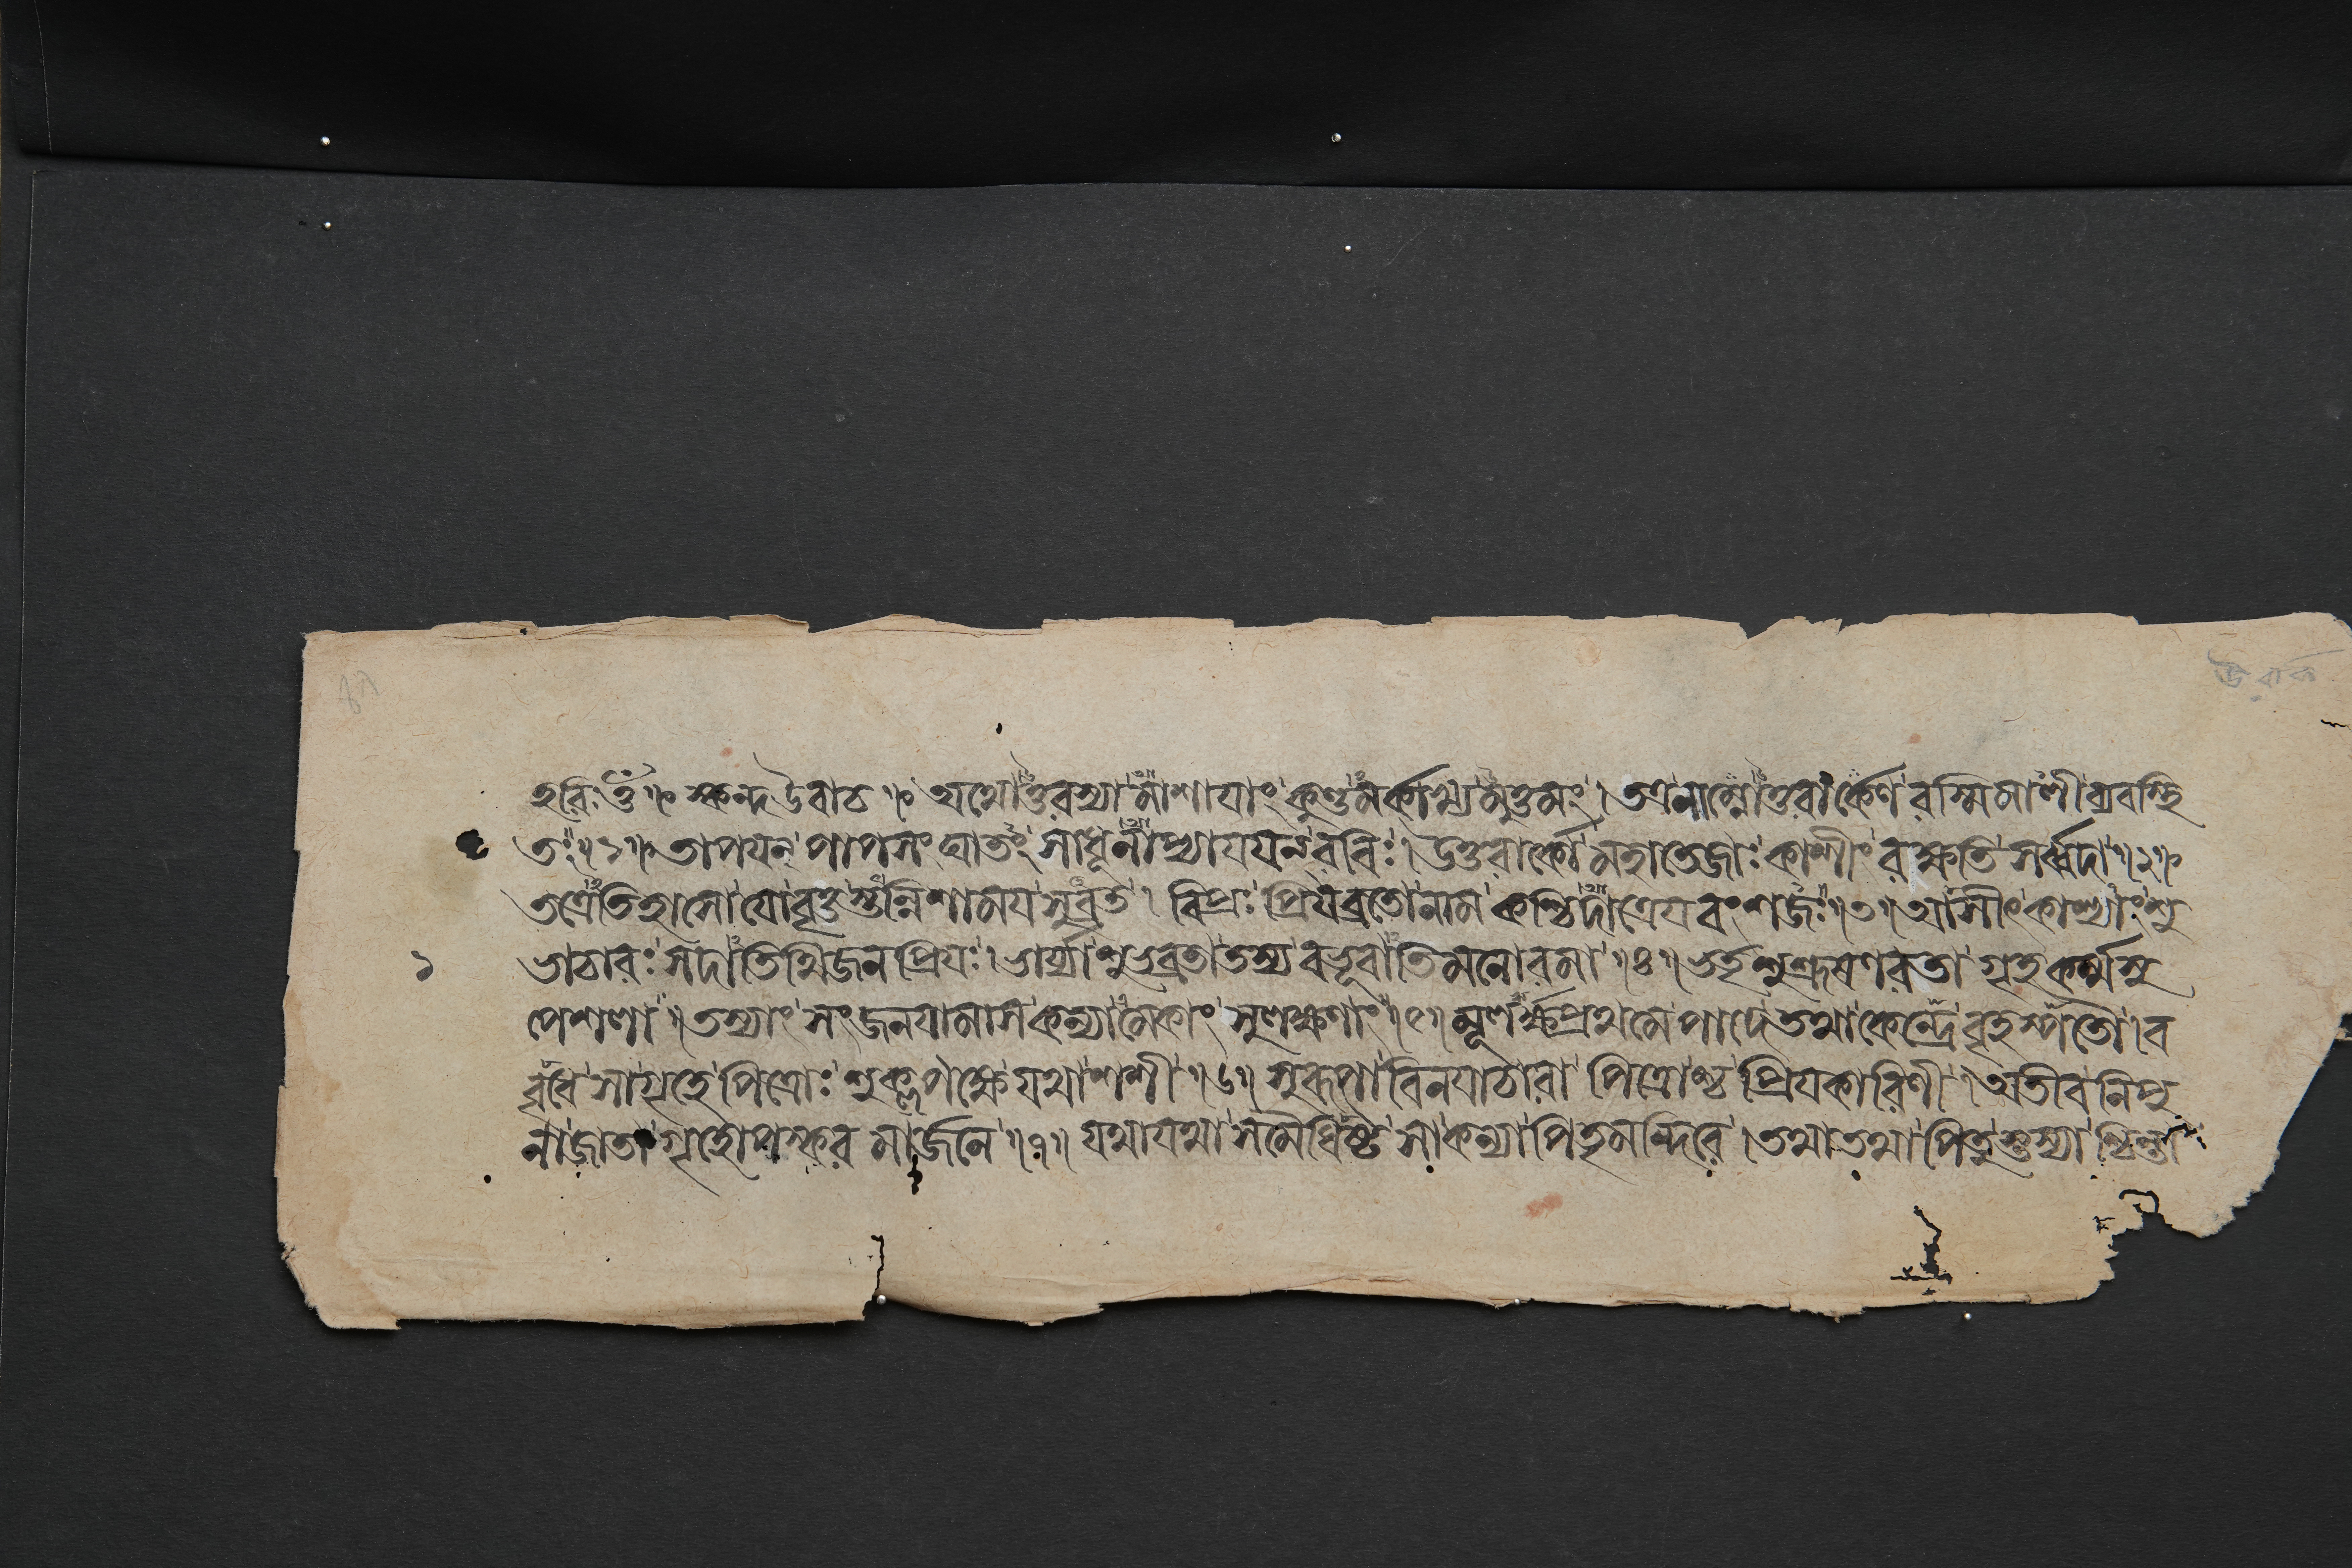 উরার্ক
হরিঃ ওঁ ॥ স্কন্দ উবাচ ॥ অথোত্তরস্যামাশাযাং কুণ্ডমর্কাখ্যমুত্তমং । তত্র নাম্নোত্তরার্কেণ রস্মিমালী ব্যবস্থি
তঃ ॥ ১ ॥ তাপযন্ পাপসংঘাতং সাধূনাপ্যাযযন্ রবিঃ । উত্তরার্কো মহাতেজাঃ কাশীং রক্ষতি সর্ব্বদা ॥ ২ ॥
তত্রেতিহাসো যো বৃত্তস্তন্নিশাময সুব্রত । বিপ্রঃ প্রিযব্রতো নাম কশ্চিদাত্রেযবংশজঃ ॥ ৩ ॥ আসীৎ কাশ্যাং শু
১
ভাচারঃ সদাতিথিজনপ্রিযঃ । ভার্য্যা শুভব্রতা তস্য বভূবাতিমনোরমা ॥ ৪ ॥ ভর্তৃশুশ্রূষণরতা গৃহকর্ম্মসু
পেশলা ॥ তস্যাং সংজনযামাস কন্যামেকাং সুলক্ষণাং ॥ ৫ ॥ মূলর্ক্ষপ্রথমে পাদে তথা কেন্দ্রে বৃহস্পতৌ । ব
বৃধে সা গৃহে পিত্রোঃ শুক্লপক্ষে যথা শশী ॥ ৬ ॥ সুরূপা বিনযাচারা পিত্রোশ্চ প্রিযকারিণী । অতীব নিপু
না জাতা গৃহোপস্করমার্জনে ॥ ৭ ॥ যথা যথা সমৈধিষ্ট সা কন্যা পিতৃমন্দিরে । তথা তথা পিতুস্তস্যাশ্চিন্তা